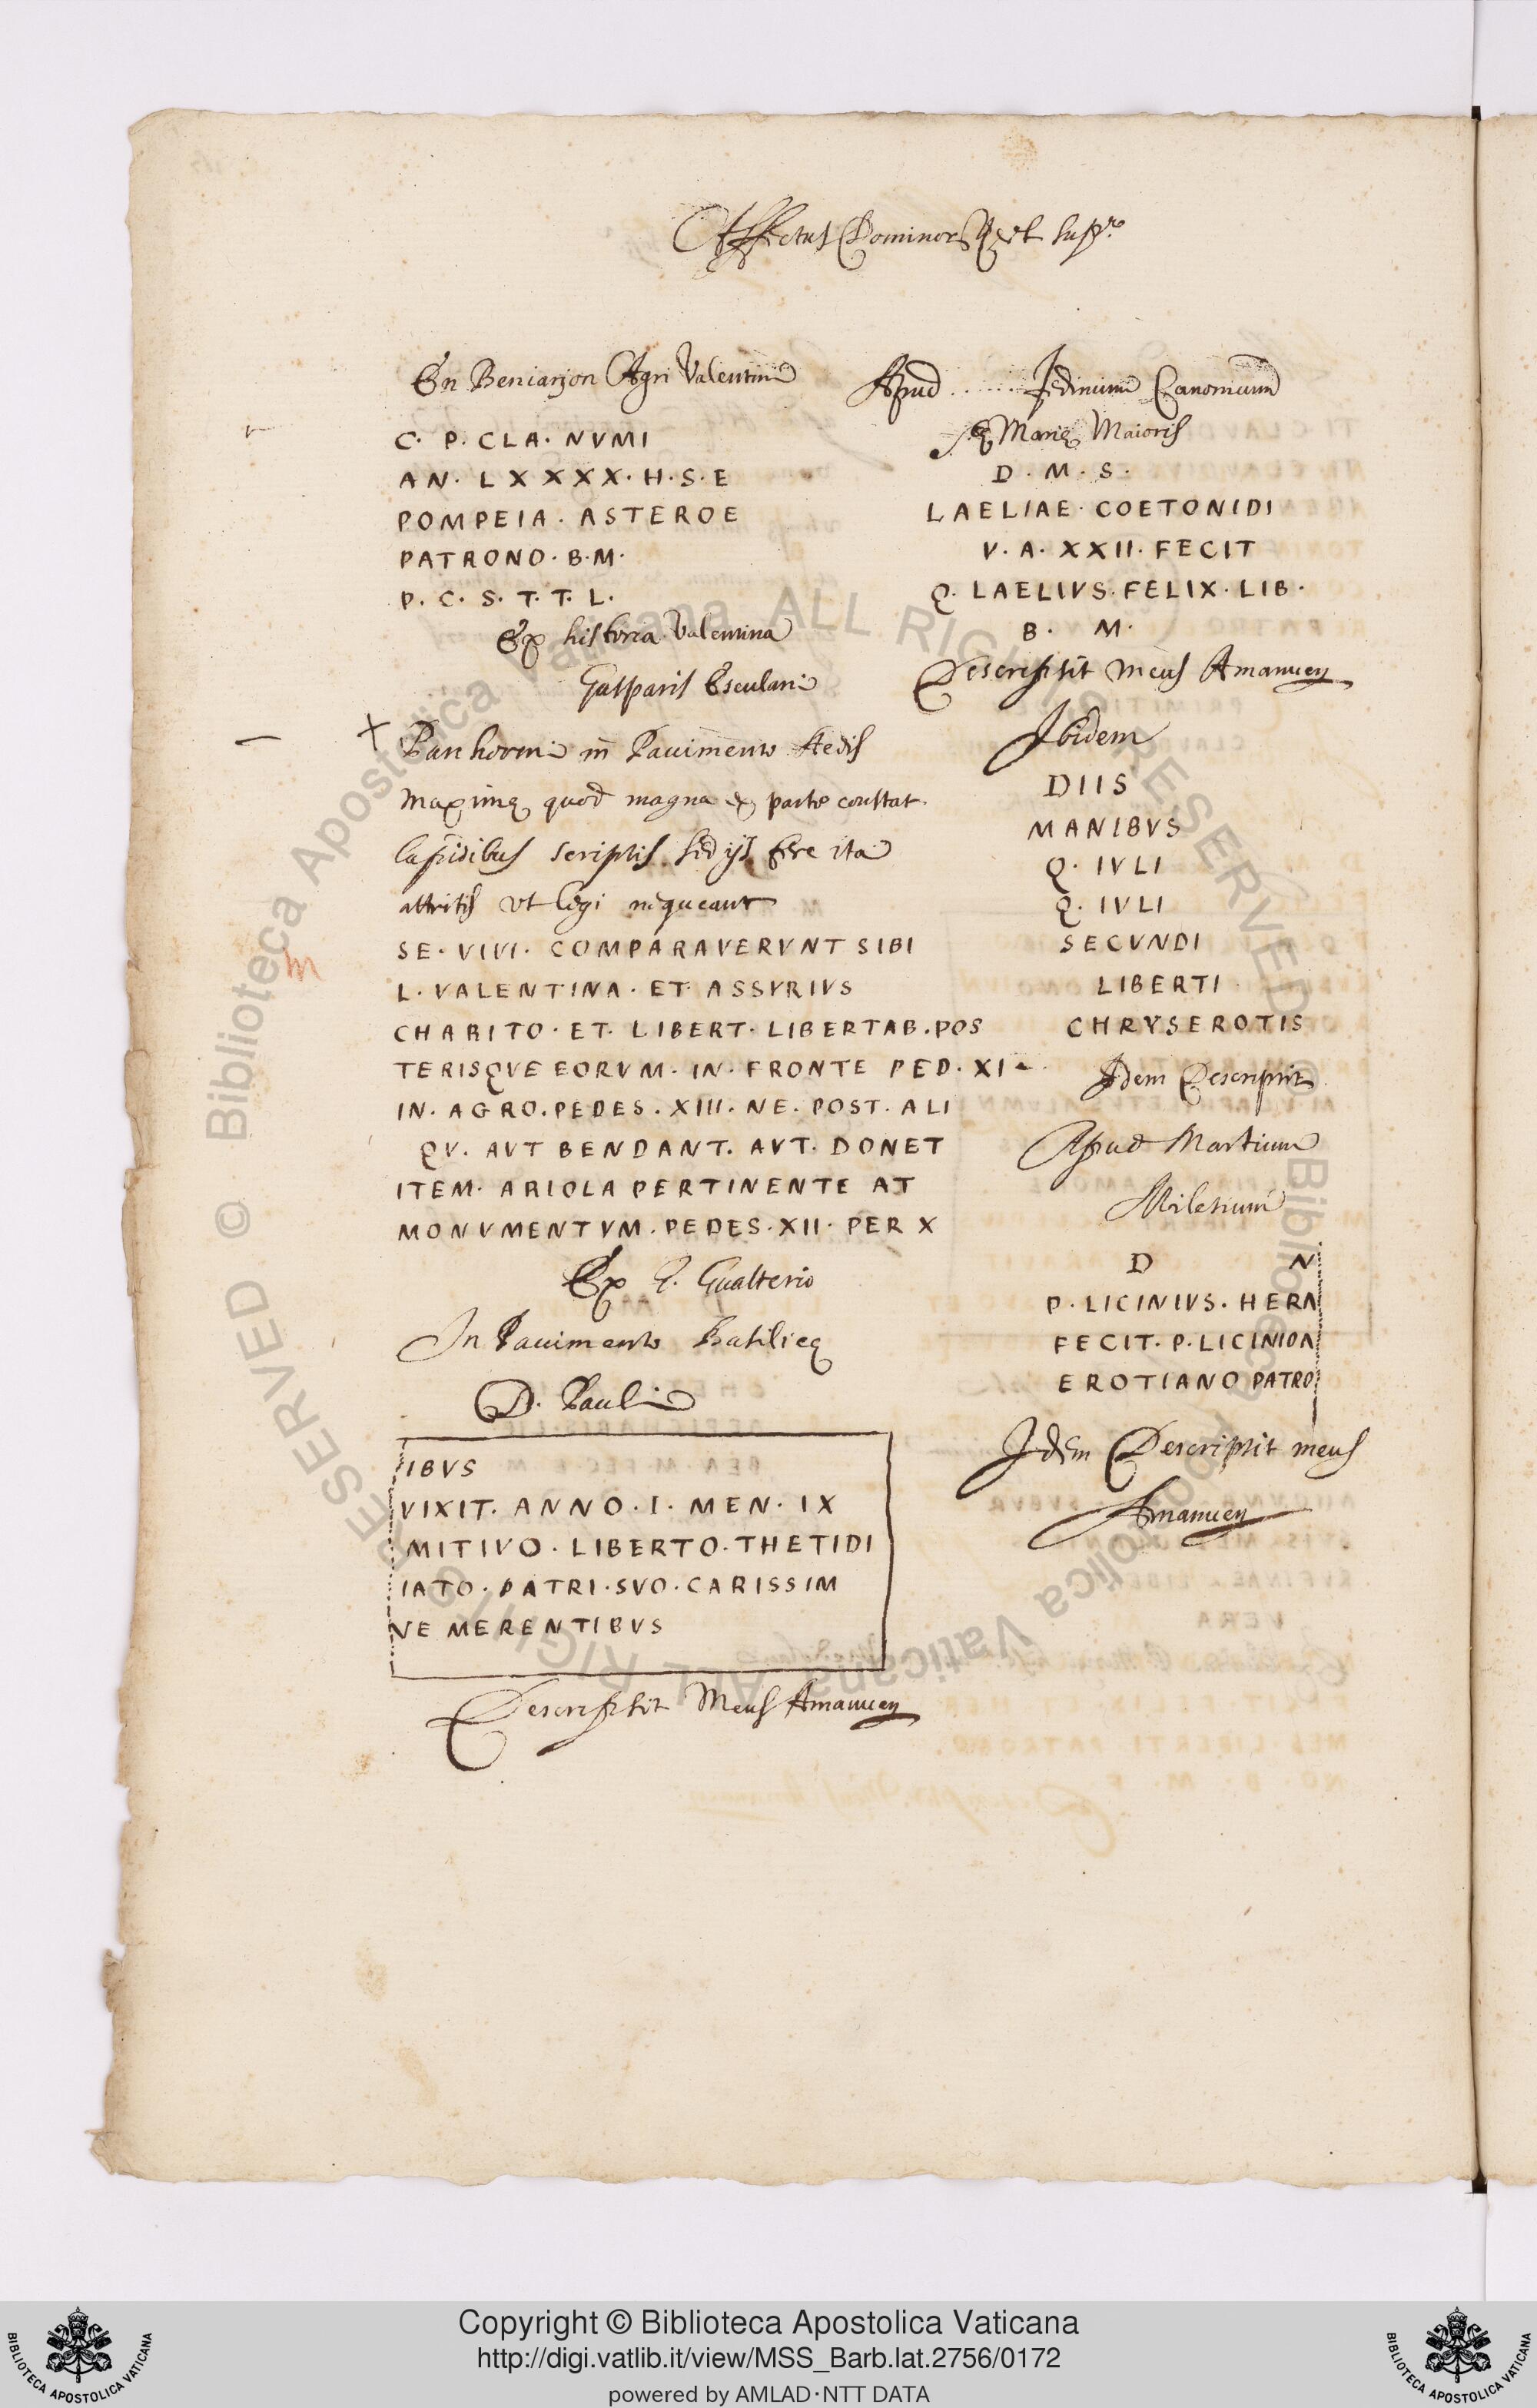 Affectus Dominor et
En Beniarjon Agri Valentini
C. P. CLA. NVMI
AN. LXXXX. H. S. E
POMPEIA. ASTEROE
PATRONO. B. M.
P. C. S. T. T. L.
Ex historia Valentina
Gasparis Esculani
Panhormi in Pauimento Aedis
maximę quod magna ex parte constat
lapidibus scriptis sed ijs fere ita
attritis vt legi nequeant
SE. VIVI. COMPARAVERVNT SIBI
L. VALENTINA. ET. ASSVRIVS
CHARITO. ET. LIBERT. LIBERTAB. POS
TERISQVE EORVM. IN. FRONTE PED. XI
IN. AGRO. PEDES. XIII. NE. POST. ALI
QV. AVT BENDANT. AVT. DONET
ITEM. ARIOLA PERTINENTE AT
MONVMENTVM. PEDES. XII. PER X
Ex G. Gualterio
In Pauimento Basilicę
D. Pauli
IBVS
VIXIT. ANNO. I. MEN. IX
MITIVO. LIBERTO. THETIDI
IATO. PATRI. SVO. CARISSIM
VE MERENTIBVS
Descripsit Meus Amanuen
Apud ...... Canonicum
S. Marię Maioris
D. M. S.
LAELIAE. COETONIDI
V. A. XXII. FECIT
Q. LAELIVS. FELIX. LIB.
B. M.
Descripsit meus Amanuen
Ibidem
DIIS
MANIBVS
Q. IVLI
Q. IVLI
SECVNDI
LIBERTI
CHRYSEROTIS
Idem Descripsit
Apud Martium
Milesium
D N
P. LICINIVS. HERA
FECIT. P. LICINIOA
EROTIANO PATRO
Idem Descripsit meus
Amanuen
Copyright © Biblioteca Apostolica Vaticana
http://digi.vatlib.it/view/MSS_Barb.lat.2756/0172
powered by AMLAD·NTT DATA
BIBLIOTECA APOSTOLICA VATICANA
BIBLIOTECA APOSTOLICA VATICANA